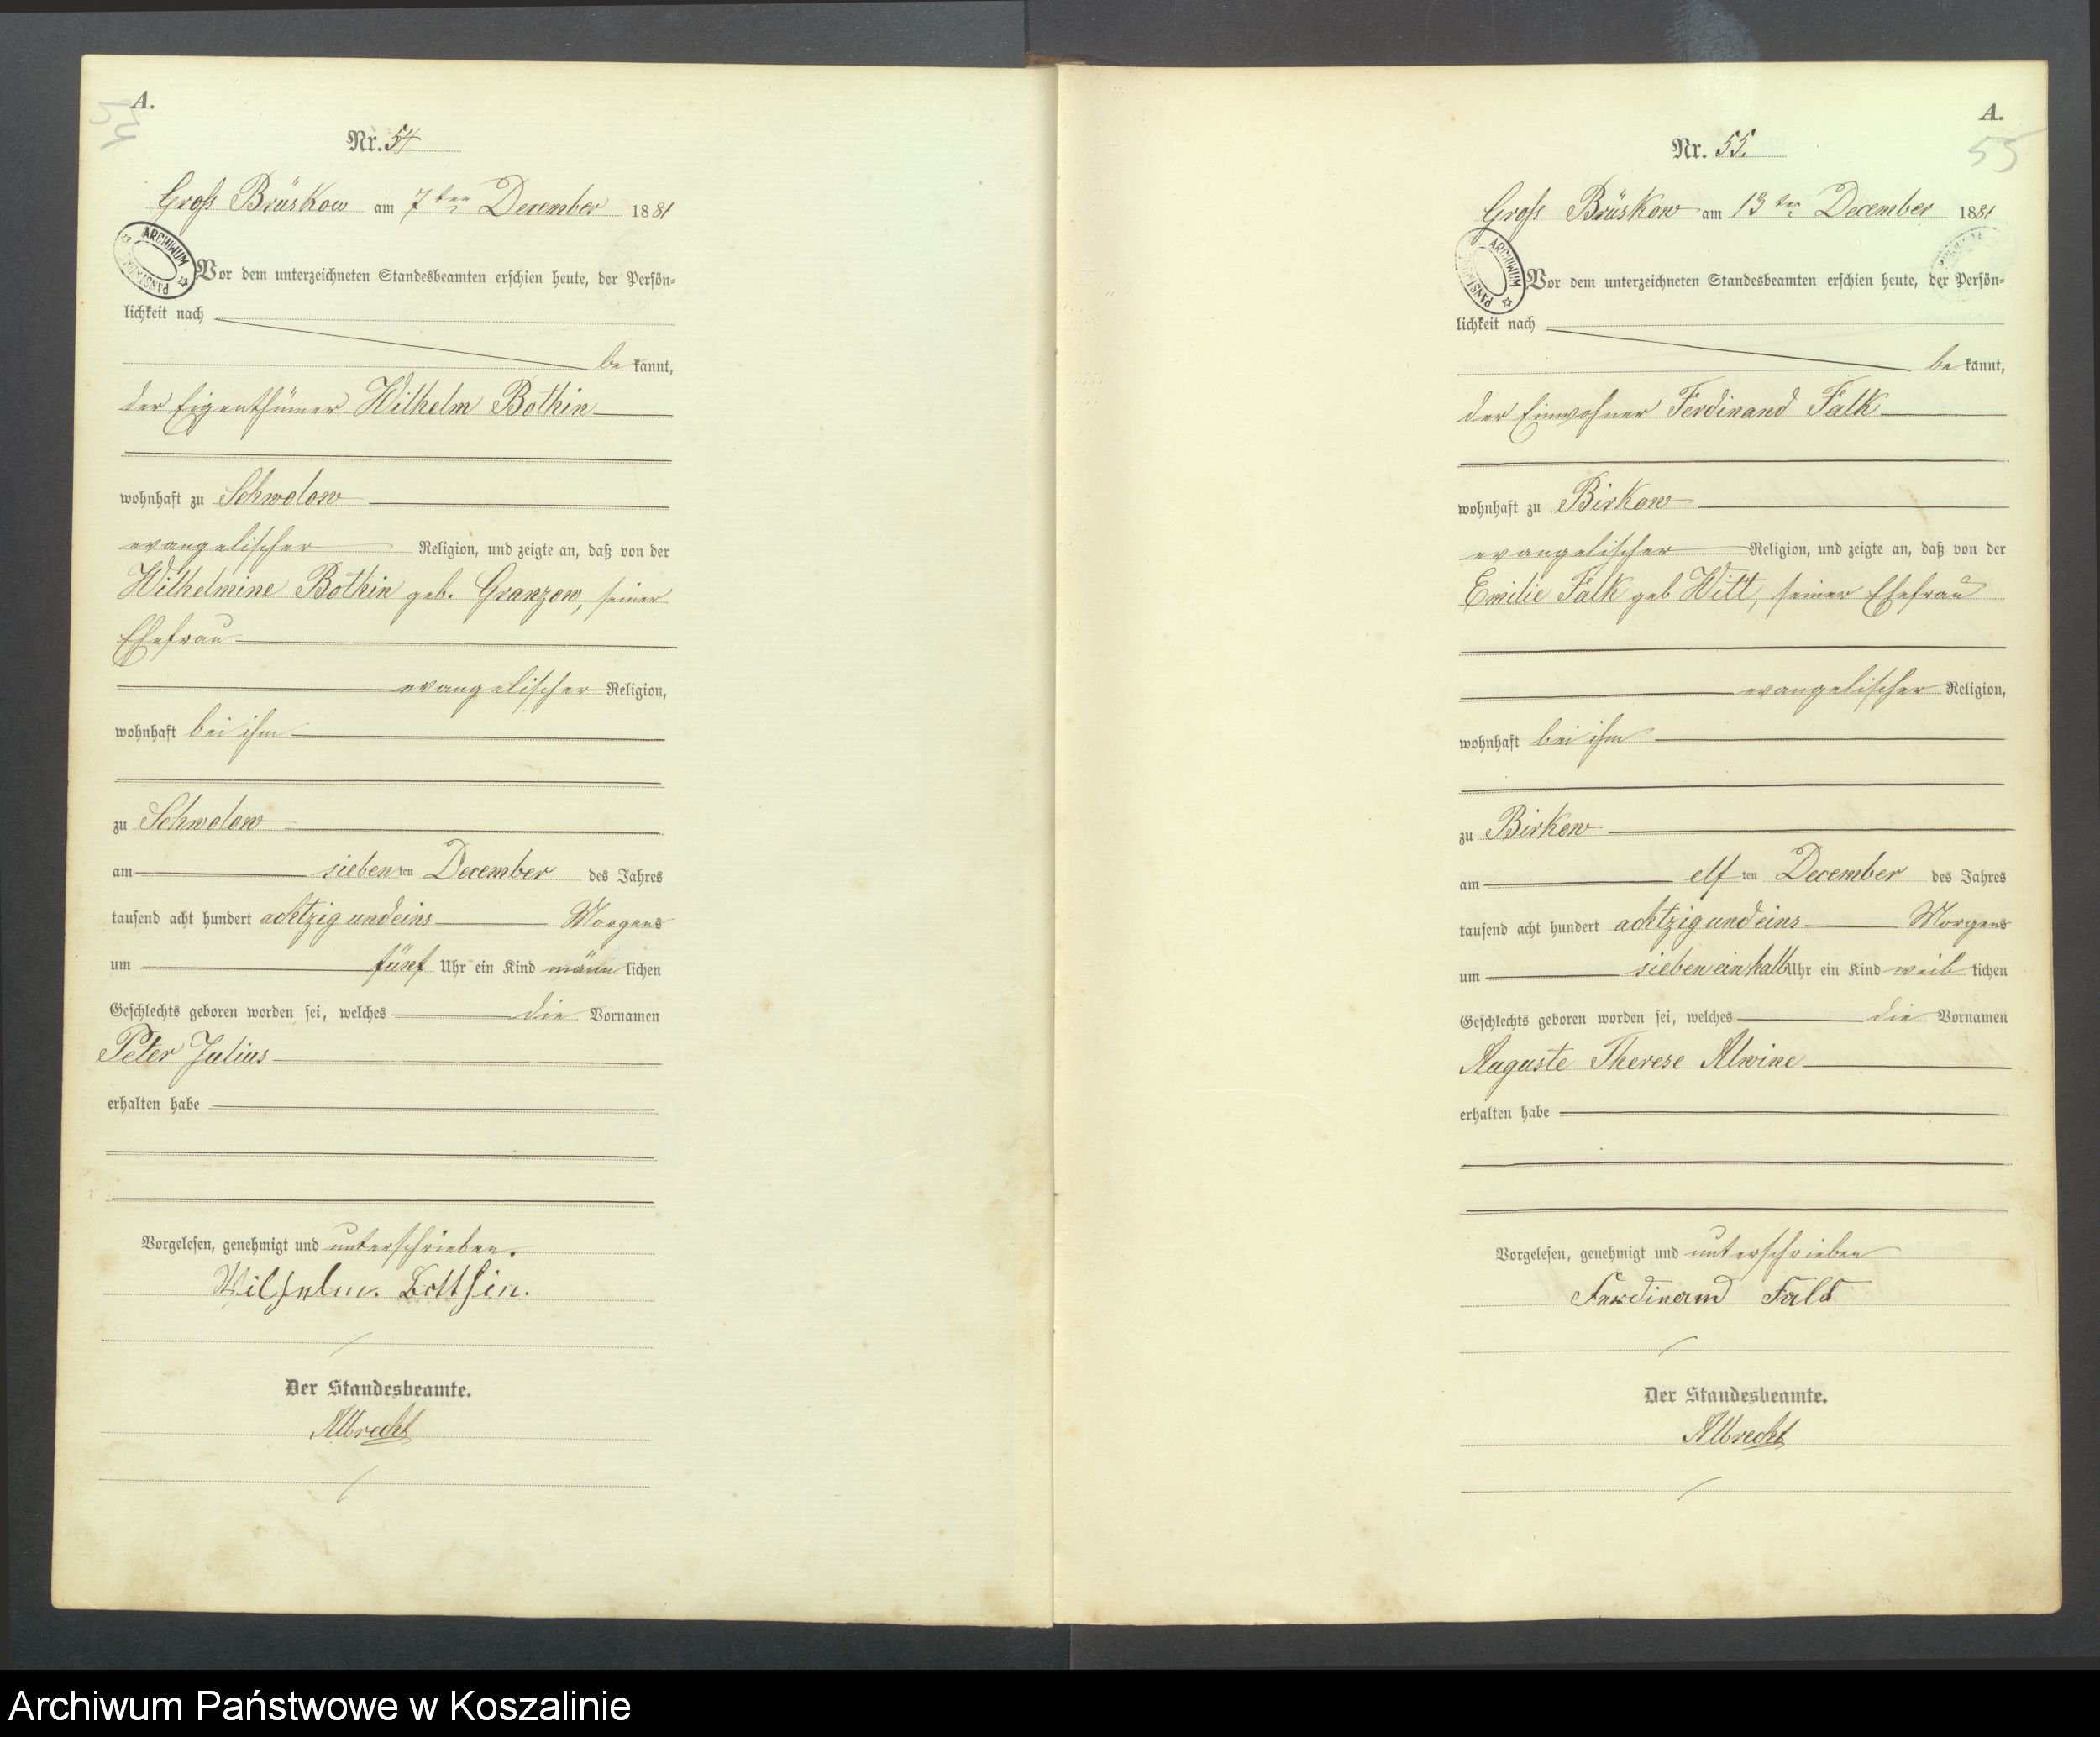 A.
54
Nr. 54
Groß Brüskow am 7ten December 1881
ARCHIWUM PAŃSTWOWE
Vor dem unterzeichneten Standesbeamten erschien heute, der Persön-
lichkeit nach
be kannt,
der Eigenthümer Wilhelm Bothin
wohnhaft zu Schwolow
evangelischer Religion, und zeigte an, daß von der
Wilhelmine Bothin geb. Granzow, seiner
Ehefrau
evangelischer Religion,
wohnhaft bei ihm
zu Schwolow
am siebenten December des Jahres
tausend acht hundert achtzig und eins Morgens
um fünf Uhr ein Kind männlichen
Geschlechts geboren worden sei, welches die Vornamen
Peter Julius
erhalten habe
Vorgelesen, genehmigt und unterschrieben.
Wilhelm Botthin.
Der Standesbeamte.
Albrecht
A.
55
Nr. 55.
Groß Brüskow am 13ten December 1881
ARCHIWUM PAŃSTWOWE
Vor dem unterzeichneten Standesbeamten erschien heute, der Persön-
lichkeit nach
be kannt,
der Einwohner Ferdinand Falk
wohnhaft zu Birkow
evangelischer Religion, und zeigte an, daß von der
Emilie Falk geb Witt, seiner Ehefrau
evangelischer Religion,
wohnhaft bei ihm
zu Birkow
am elf ten December des Jahres
tausend acht hundert achtzig und eins Morgens
um sieben einhalb Uhr ein Kind weiblichen
Geschlechts geboren worden sei, welches die Vornamen
Auguste Therese Alwine
erhalten habe
Vorgelesen, genehmigt und unterschrieben
Ferdinand Falk
Der Standesbeamte.
Albrecht
Archiwum Państwowe w Koszalinie